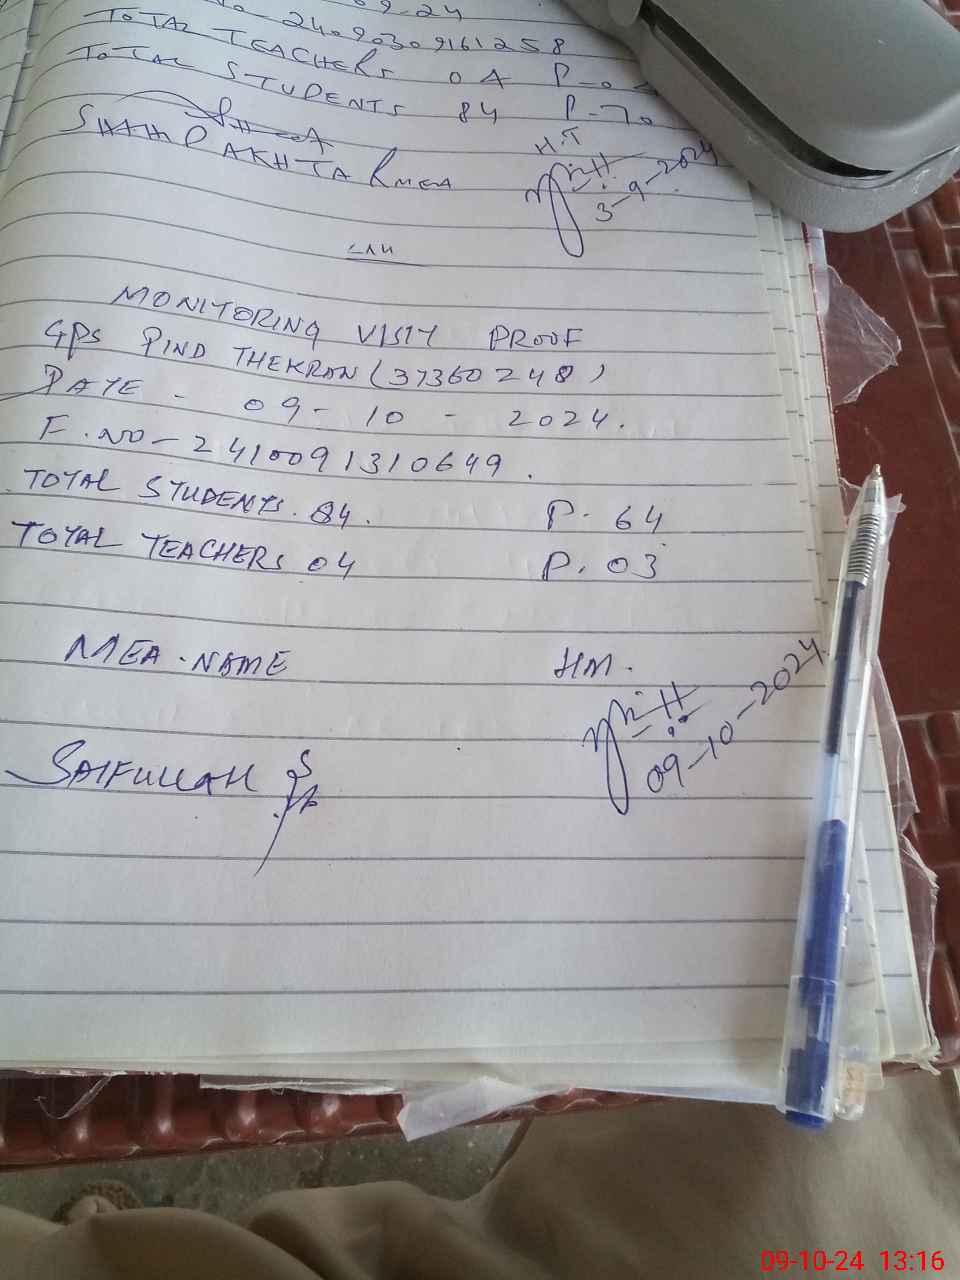 09-24
NO-24090309161258
TOTAL TEACHERS 04 P-0
TOTAL STUDENTS 84 P-70
SHAHID AKHTAR MEA
H.T
3-9-2024
MONITORING VISIT PROOF
GPS PIND THEKRAN (37360248)
DATE - 09-10-2024.
F.NO-2410091310649.
TOTAL STUDENTS. 84. P. 64
TOTAL TEACHERS 04 P. 03
MEA.NAME HM.
09-10-2024
SAIFULLAH
09-10-24 13:16